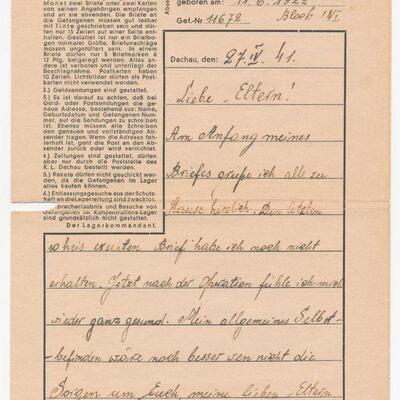 Monat zwei Briefe oder zwei Karten
von seinen Angehörigen empfangen
und an sie absenden. Die Briefe an
die Gefangenen müssen gut lesbar
mit Tinte geschrieben sein und dür-
fen nur 15 Zeilen auf einer Seite ent-
halten. Gestattet ist nur ein Briefbo-
gen normaler Größe. Briefumschläge
müssen ungefüttert sein. In einem
Briefe dürfen nur 5 Briefmarken à
12 Pfg. beigelegt werden. Alles an-
dere ist verboten und unterliegt der
Beschlagnahme. Postkarten haben
10 Zeilen. Lichtbilder dürfen als Post-
karten nicht verwendet werden.
2.) Geldsendungen sind gestattet.
3.) Es ist darauf zu achten, daß bei
Geld- oder Postsendungen die ge-
naue Adresse, bestehend aus: Name,
Geburtsdatum und Gefangenen Num-
mer, auf die Sendungen zu schreiben
ist. Ebenso müssen alle Schreiben
den genauen und vollständigen Ab-
sender tragen. Wenn die Adresse feh-
lerhaft ist, geht die Post an den Ab-
sender zurück oder wird vernichtet.
4.) Zeitungen sind gestattet, dürfen
aber nur durch die Poststelle des
K. L. Dachau bestellt werden.
5.) Pakete dürfen nicht geschickt wer-
den, da die Gefangenen im Lager
alles kaufen können.
6.) Entlassungsgesuche aus der Schutz-
haft an die Lagerleitung sind zwecklos.
Sprecherlaubnis und Besuche von
Gefangenen im Konzentrations-Lager
sind grundsätzlich nicht gestattet.
Der Lagerkommandant.
Abse
geboren am: 11. 6. 1922
Gef.-Nr. 11678 Block
Dachau, den 27. IV. 41.
Liebe Eltern!
Am Anfang meines
Briefes grüße ich alle zu
Hause herzlich. Den letzten
erhalten. Jetzt nach der Operation fühle ich mich
wieder ganz gesund. Mein allgemeines Selbst-
befinden wäre noch besser wen nicht die
Sorgen um Euch, meine lieben Eltern